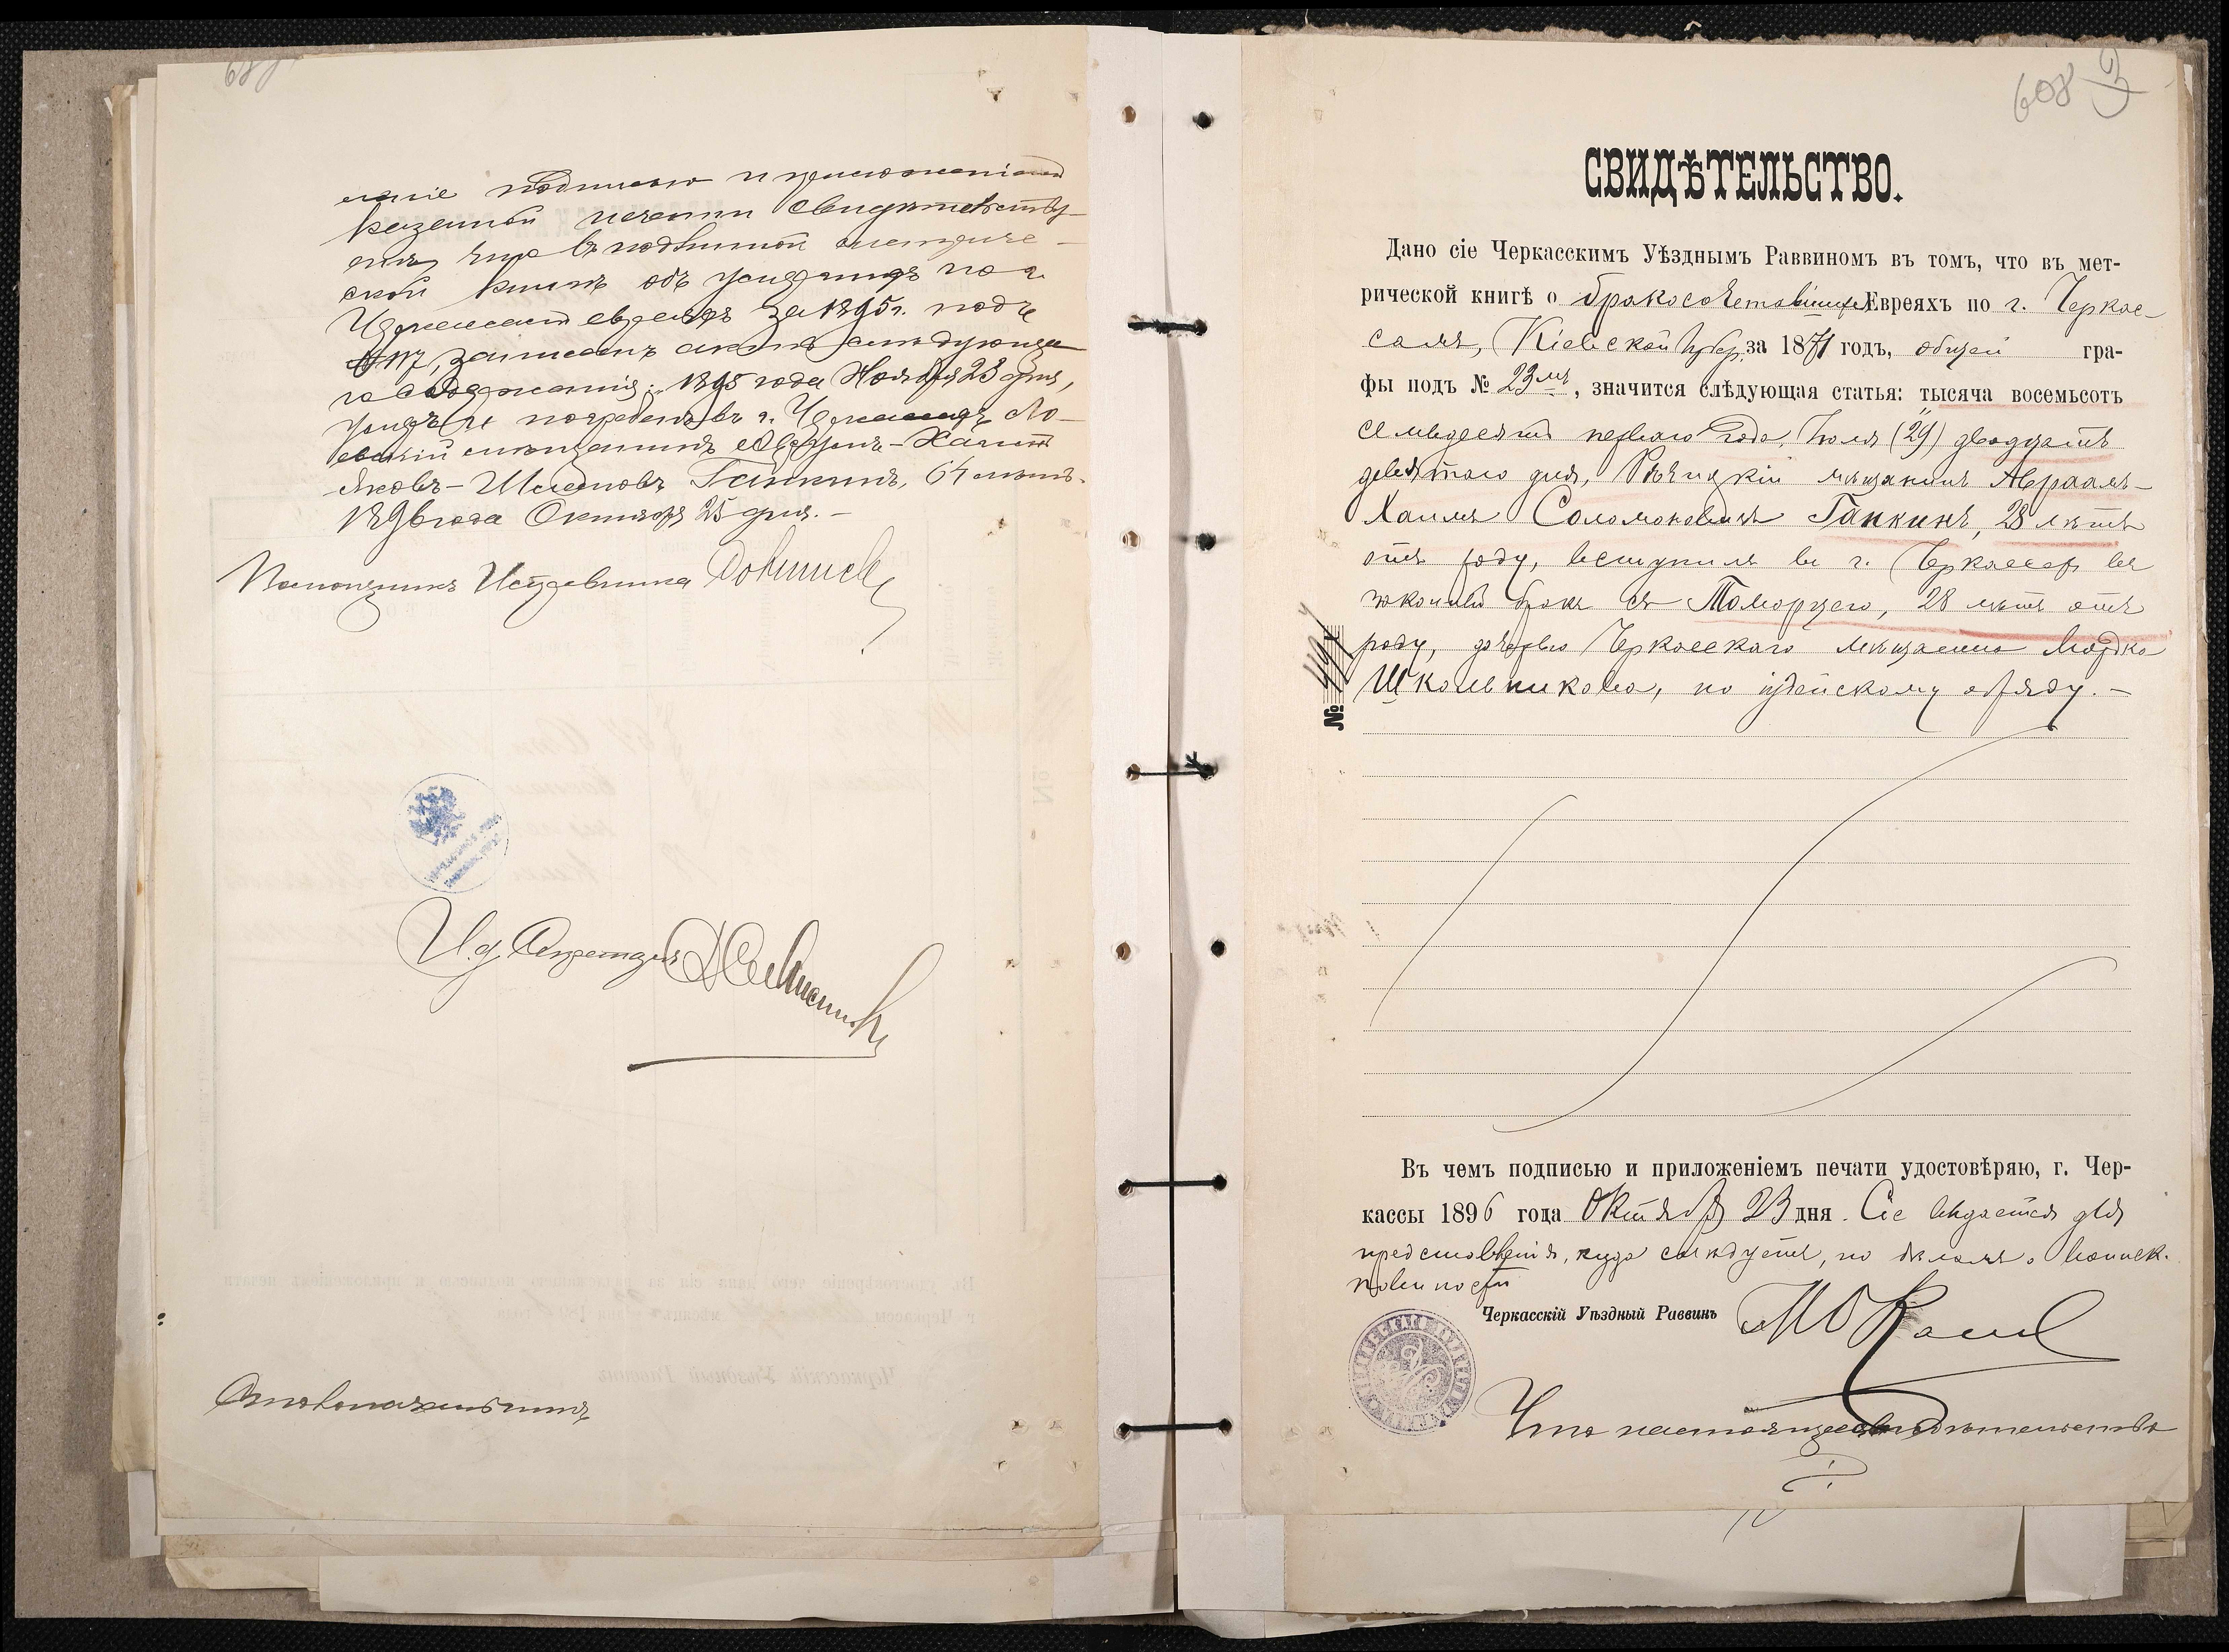 подписью и приложеніемъ
казенной печати свидѣтельству-
етъ, что въ подлинной метриче-
ской книгѣ объ умершихъ по г.
Черкассамъ евреяхъ за 1895 г. подъ
№ 117, записанъ актъ слѣдующа-
го содержанія: 1895 года Ноября 23 дня,
умеръ и погребенъ въ г. Черкассахъ
мѣщанинъ Авраамъ-Хаимъ
Яковъ-Шлемовъ Гапкинъ, 64 лѣтъ.
1896 года Октября 25 дня.-
Помощникъ Исправника
И. д. Секретаря
Столоначальникъ
608
3
СВИДѢТЕЛЬСТВО.
Дано сіе Черкасскимъ Уѣзднымъ Раввиномъ въ томъ, что въ мет-
рической книгѣ о бракосочетавшихся Евреяхъ по г. Черкас-
самъ, Кіевской губер. за 1871 годъ, общей гра-
фы подъ № 23мъ, значится слѣдующая статья: тысяча восемьсотъ
семьдесятъ перваго года, Іюля (29) двадцать
девятаго дня, Рѣчицкій мѣщанинъ Авраамъ-
Хаимъ Соломоновичъ Гапкинъ, 28 лѣтъ
отъ роду, вступилъ въ г. Черкассахъ въ
законный бракъ съ Томарцею, 28 лѣтъ отъ
роду, дочерью Черкасскаго мѣщанина Мордка
Школьникова, по іудейскому обряду.-
№ 447
Въ чемъ подписью и приложеніемъ печати удостовѣряю, г. Чер-
кассы 1896 года Октября 23 дня. Сіе выдается для
представленія, куда слѣдуетъ, по дѣламъ о воинск.
повинности
Черкасскій Уѣздный Раввинъ
Что настоящее свидѣтельство